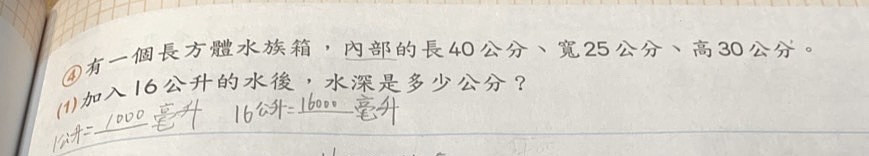 ④有一個長方體水族箱，內部的長40公分、寬25公分、高30公分。
(1)加入16公升的水後，水深是多少公分？
1公升=1000毫升 16公升=16000毫升